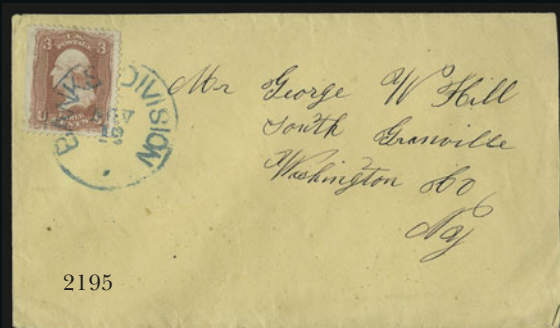 3 3
U.S.
POSTAGE
BANKS' DIVISION
Mr George W Hill
South Granville
Washington Co
Ny
2195